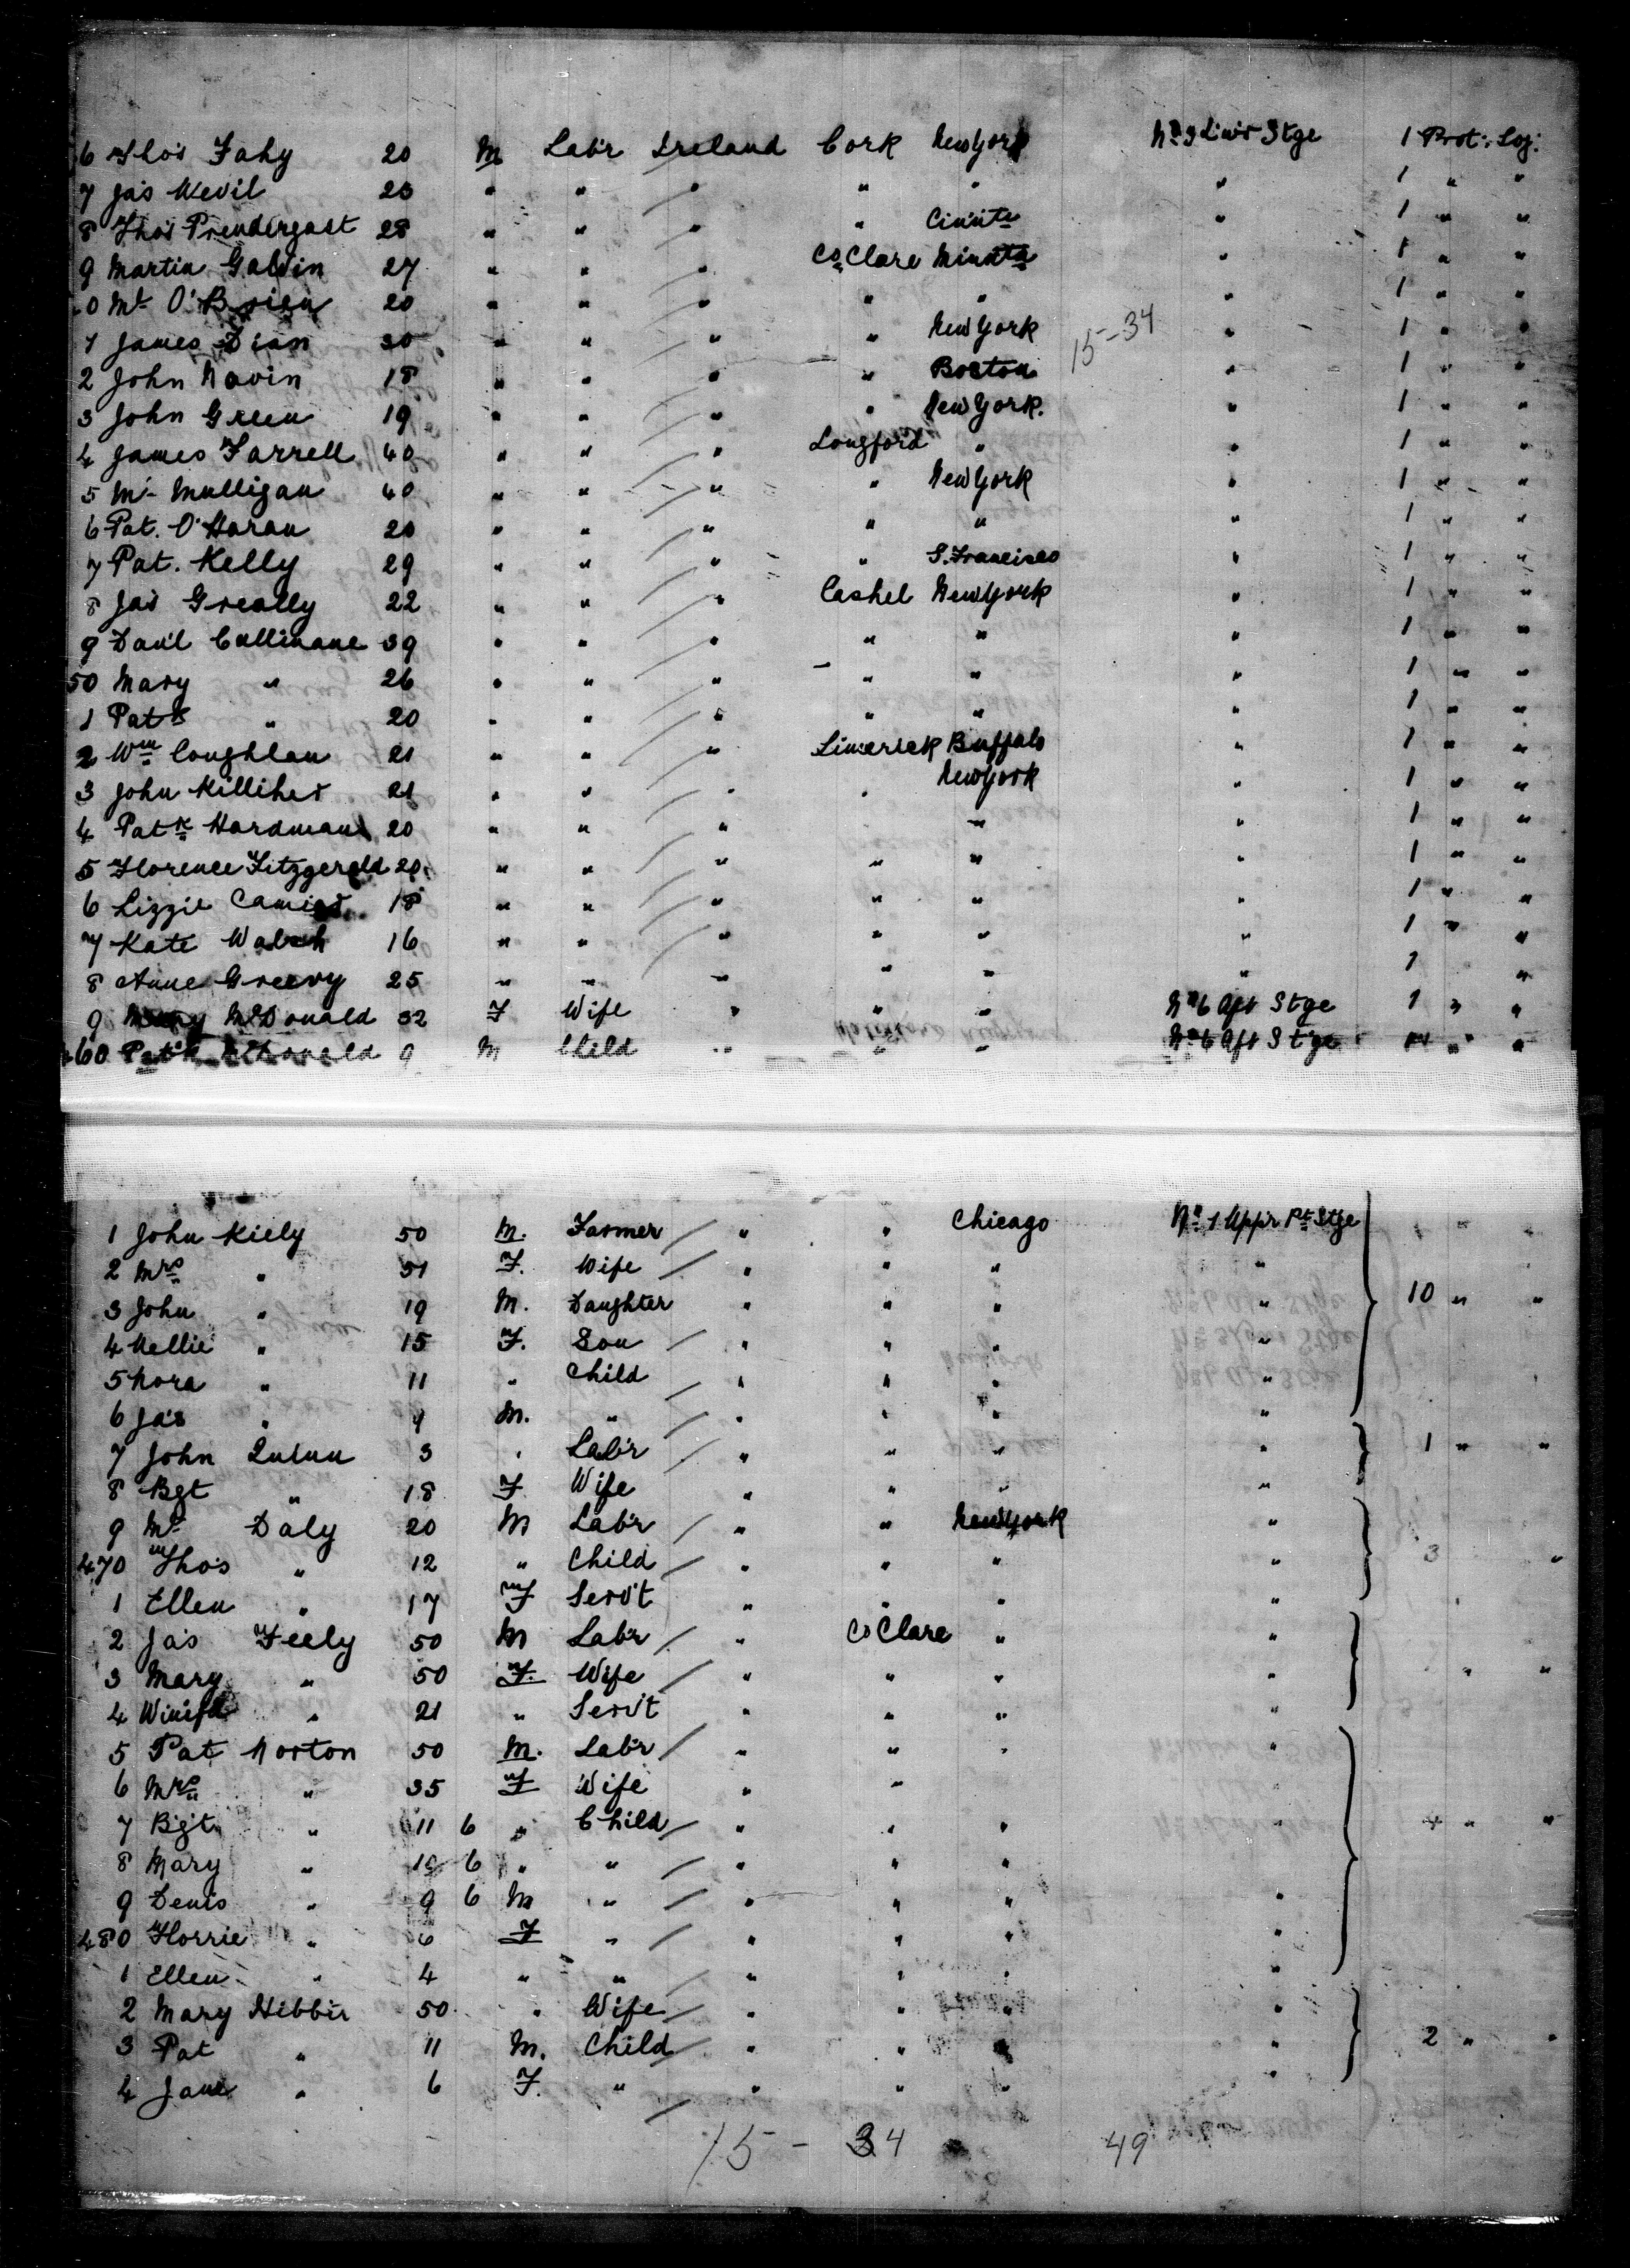 6 Tho's Fahy 20 M Lab'r Ireland Cork New York Stge 1 Prot: Log:
7 Jas Nevil " " " " " " 1 " "
8 Tho's Prendergast 28 " " " " Cinin'te " 1 " "
9 Martin Galvin 27 " " " Co Clare Min'ota " 1 " "
0 Ml O'Brien 20 " " " " " " 1 " "
1 James Dian 30 " " " " New York 15-34 " 1 " "
2 John Navin 18 " " " " Boston " 1 " "
3 John Green 19 " " " " New York. " 1 " "
4 James Farrell 40 " " " Longford " " 1 " "
5 Ml Mulligan 40 " " " " New York " 1 " "
6 Pat. O'Haran 20 " " " " " " 1 " "
7 Pat. Kelly 29 " " " " S. Francisco " 1 " "
8 Jas Greally 22 " " " Cashel New York " 1 " "
9 Dan'l Cullinane 39 " " " " " " 1 " "
50 Mary " 26 " " " " " " 1 " "
1 Patk " 20 " " " " " " 1 " "
2 Wm Coughlan 21 " " " Limerick Buffalo " 1 " "
3 John Killiher 21 " " " " New York " 1 " "
4 Patk Hardman 20 " " " " " 1 " "
5 Florence Fitzgerald 20 " " " " " " 1 " "
6 Lizzie 18 " " " " " " 1 " "
7 Kate Walsh 16 " " " " " " 1 " "
8 Anne Greevy 25 " " " " " " 1 "
9 Mary McDonald 32 F Wife " " " No 6 Aft Stge 1 " "
460 Patk McDonald 9 M Child " " " No 6 Aft Stge " "
1 John Kiely 50 M. Farmer " " Chicago No 1 Uppr Pt Stge " "
2 Mrs " 51 F. Wife " " " "
3 John " 19 M. Daughter " " " " 10 " "
4 Nellie " 15 F. Son " " " "
5 Nora " 11 " Child " " " "
6 Jas " 9 M. " " " " "
7 John Quinn 3 " Lab'r " " " " 1 " "
8 Bgt " 18 F Wife " " " "
9 Ml Daly 20 M Lab'r " " New York "
470 Tho's " 12 " Child " " " " 3 "
1 Ellen " 17 F Serv't " " " "
2 Jas Feely 50 M Lab'r " Co Clare " "
3 Mary " 50 F. Wife " " " " " "
4 Winifd " 21 " Serv't " " " "
5 Pat Norton 50 M. Lab'r " " " "
6 Mrs " 35 F Wife " "
7 Bgt " 11 6 " Child " " " " 4 " "
8 Mary " 10 6 " " " " "
9 Denis " 9 6 M " " " " "
480 Florrie " 6 F " " " " "
1 Ellen " 4 " " " " " "
2 Mary Hibbir 50 " Wife " " " "
3 Pat " 11 M. Child " " " " 2 " "
4 Jane " 6 F. " " " " "
15 - 34 49